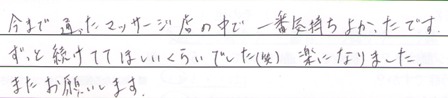 今まで通ったマッサージ店の中で一番気持ちよかったです。
ずっと続けててほしいくらいでした(笑) 楽になりました。
またお願いします。